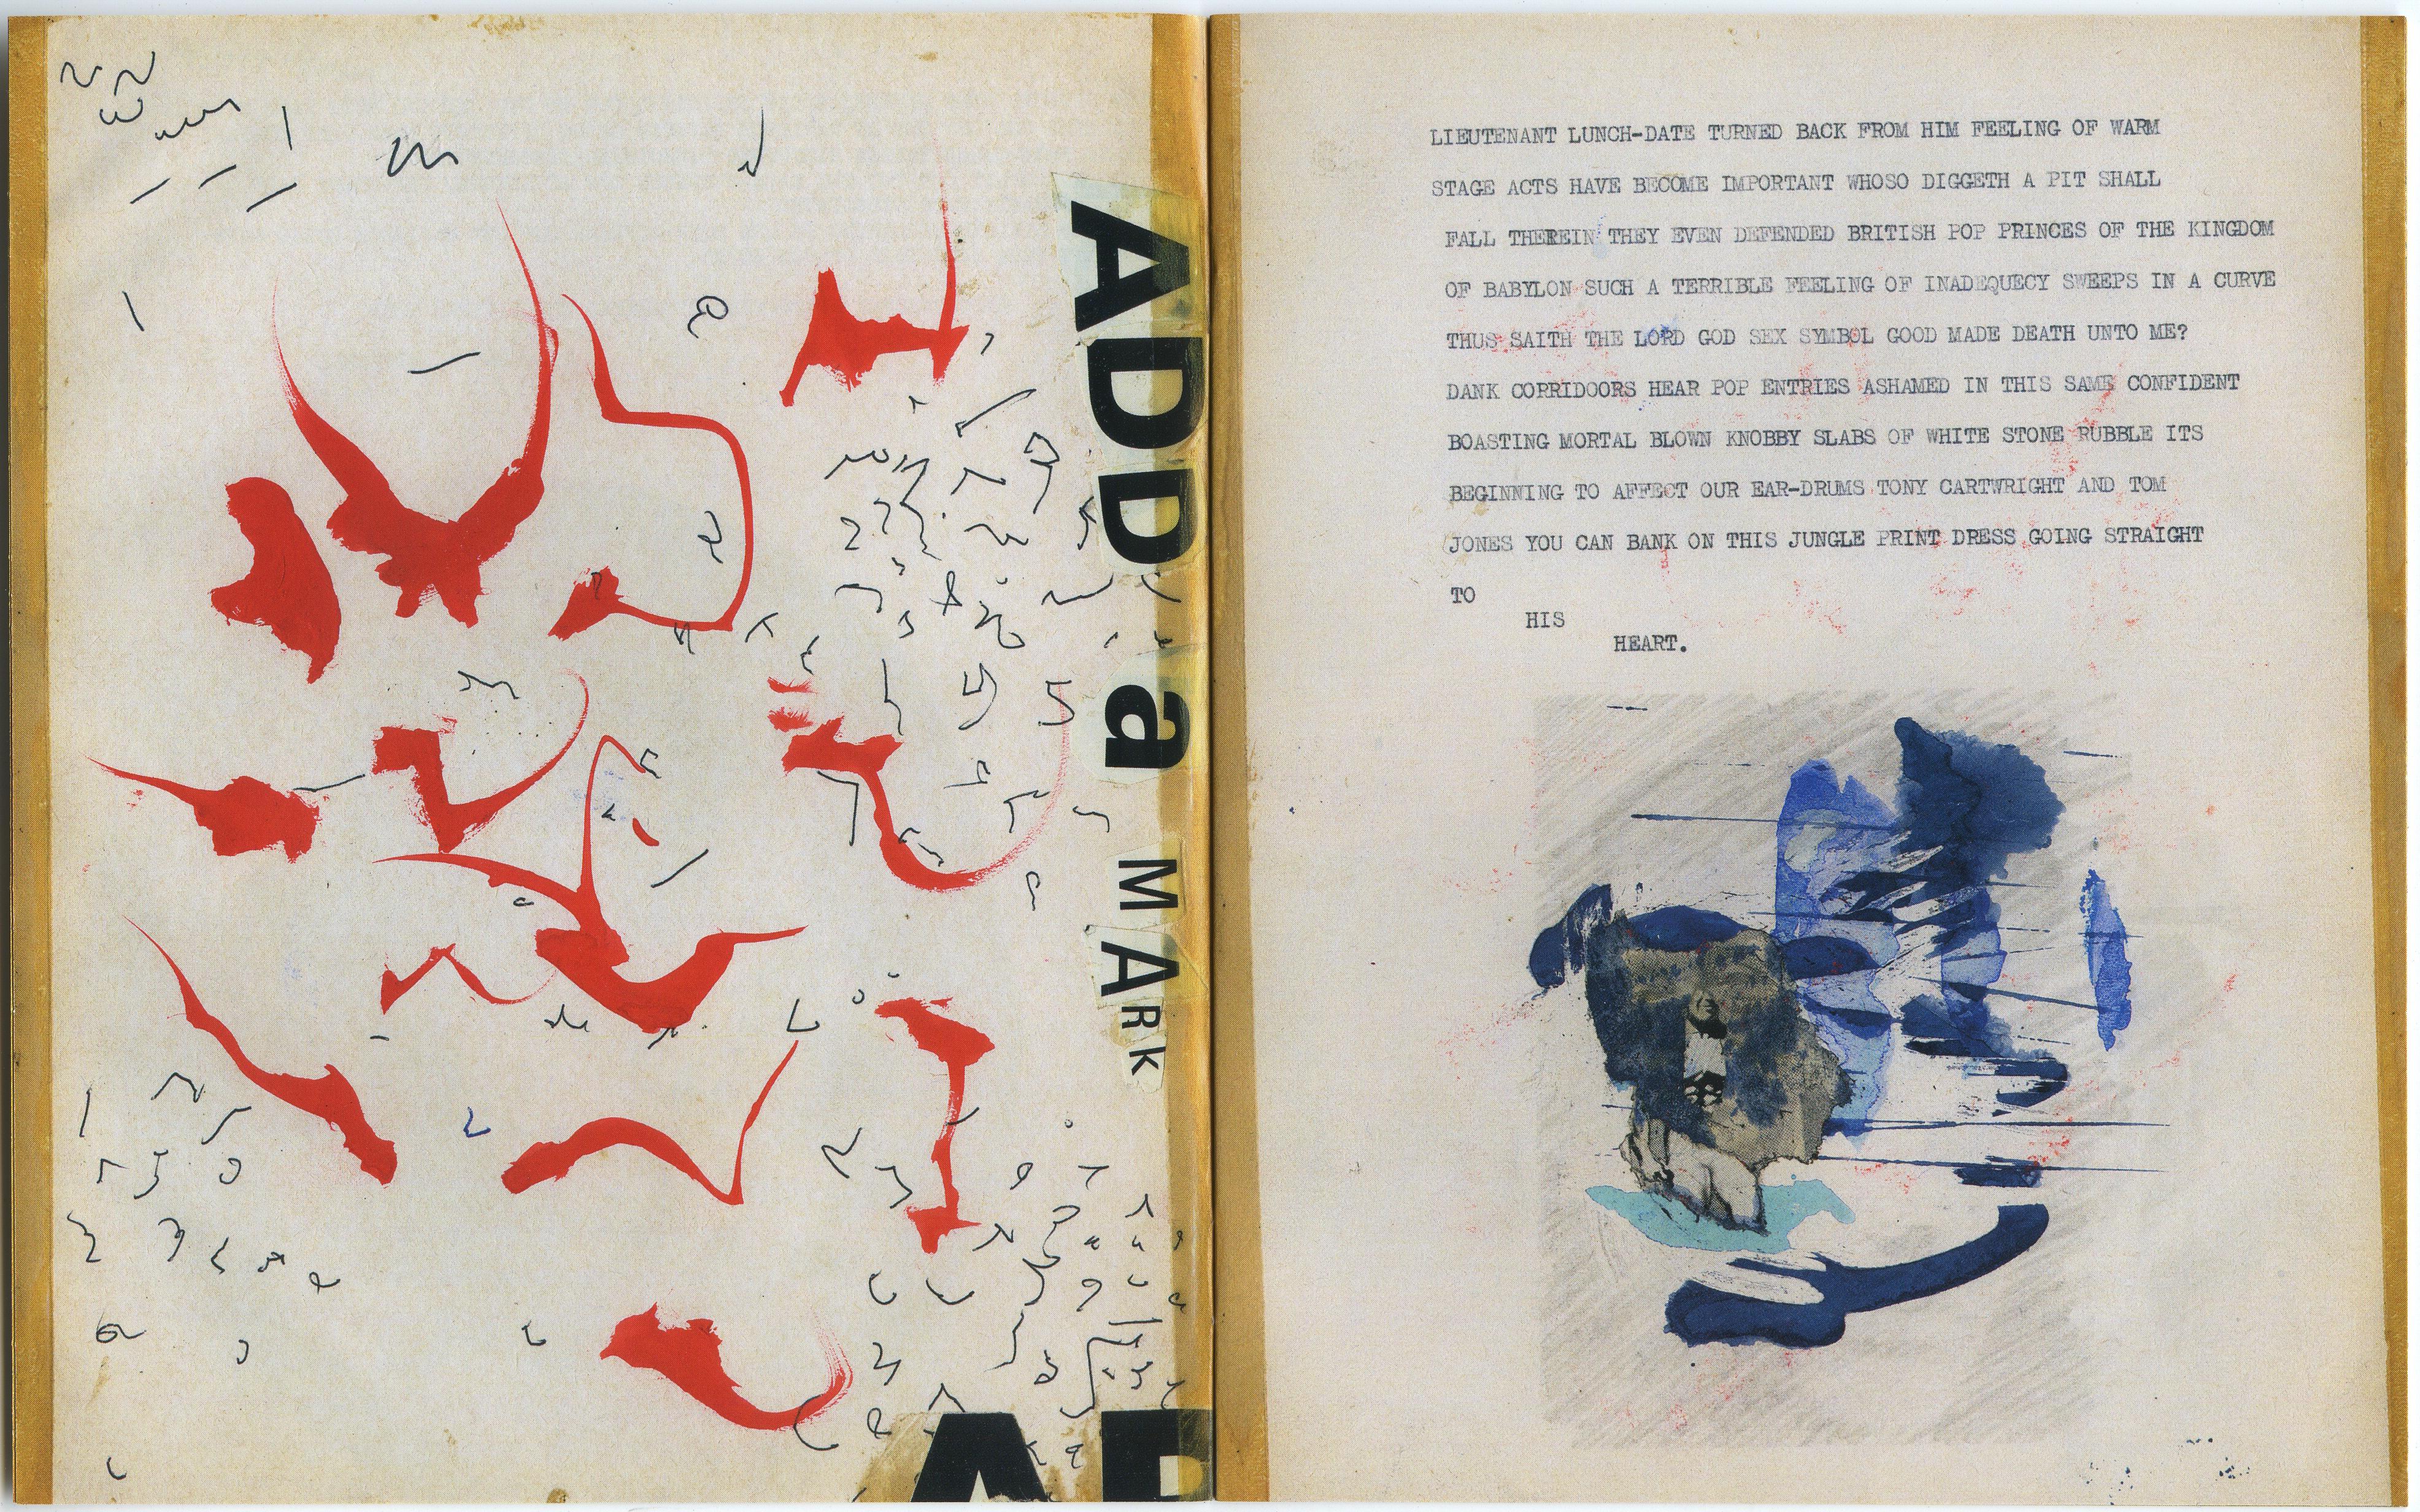 ADD a MARk
LIEUTENANT LUNCH-DATE TURNED BACK FROM HIM FEELING OF WARM
STAGE ACTS HAVE BECOME IMPORTANT WHOSO DIGGETH A PIT SHALL
FALL THEREIN THEY EVEN DEFENDED BRITISH POP PRINCES OF THE KINGDOM
OF BABYLON SUCH A TERRIBLE FEELING OF INADEQUECY SWEEPS IN A CURVE
THUS SAITH THE LORD GOD SEX SYMBOL GOOD MADE DEATH UNTO ME?
DANK CORRIDOORS HEAR POP ENTRIES ASHAMED IN THIS SAME CONFIDENT
BOASTING MORTAL BLOWN KNOBBY SLABS OF WHITE STONE RUBBLE ITS
BEGINNING TO AFFECT OUR EAR-DRUMS TONY CARTWRIGHT AND TOM
JONES YOU CAN BANK ON THIS JUNGLE PRINT DRESS GOING STRAIGHT
TO
HIS
HEART.